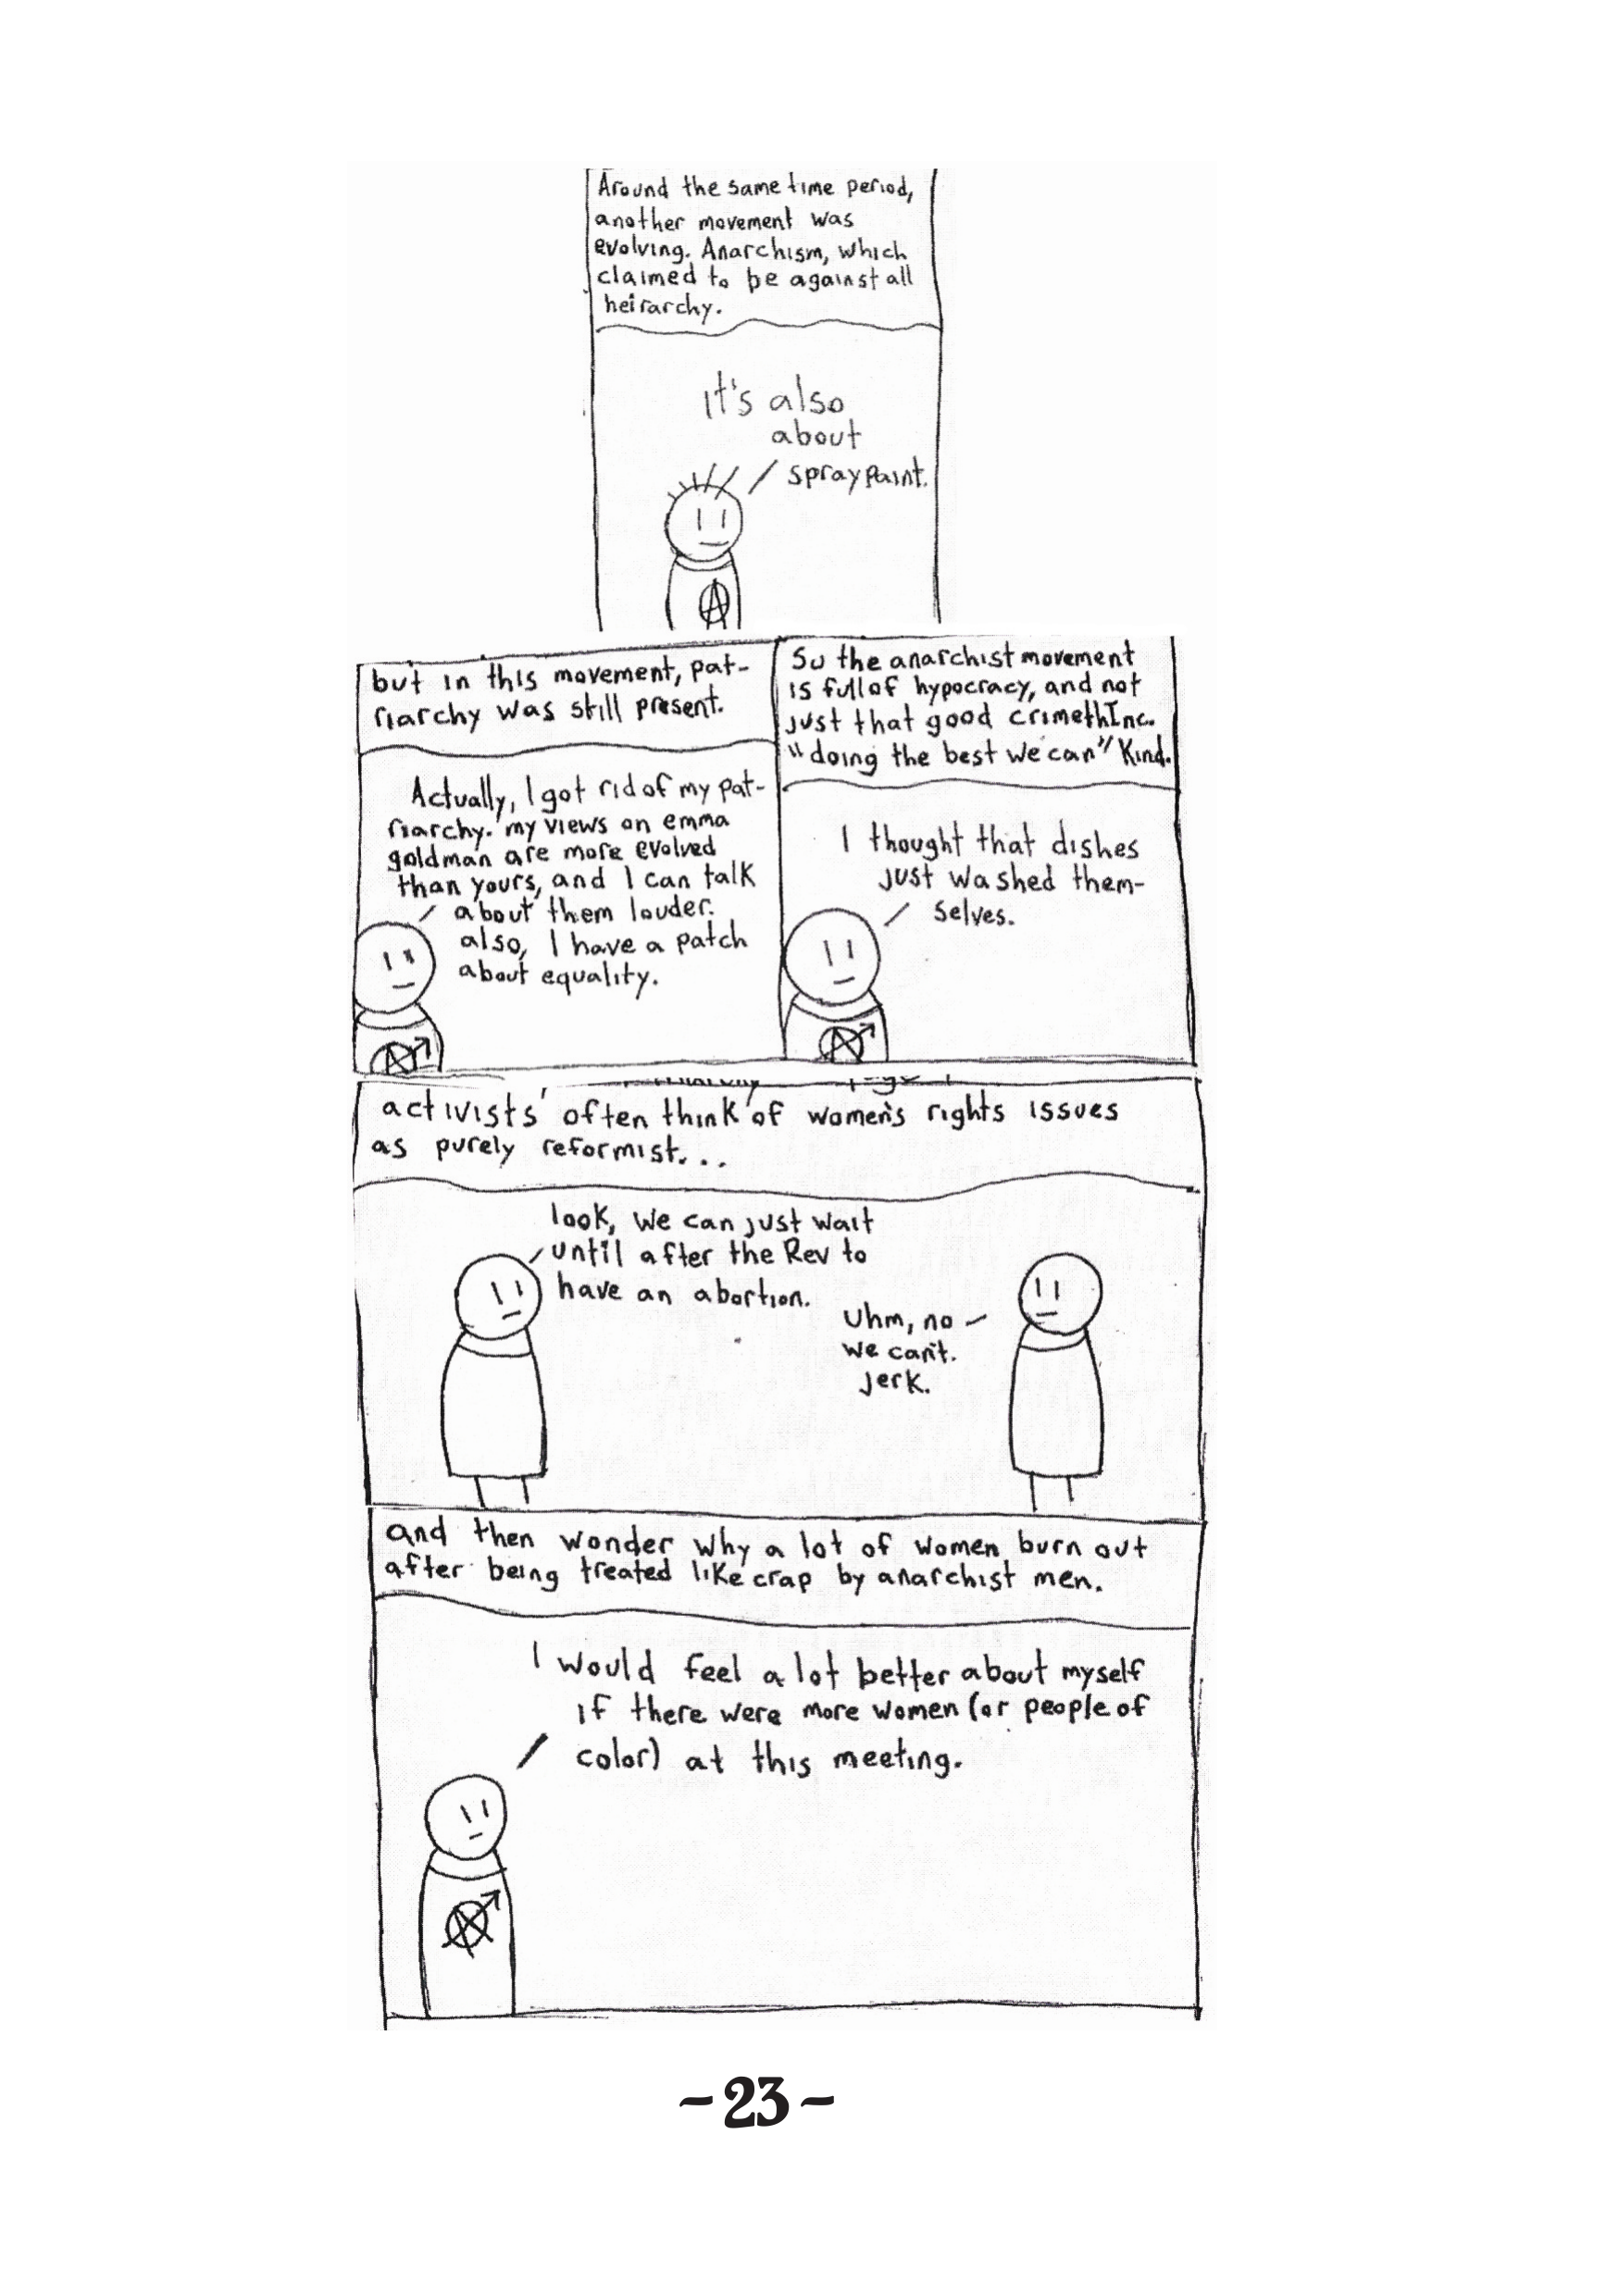 Around the same time period,
another movement was
evolving. Anarchism, which
claimed to be against all
heirarchy.
it's also
about
spraypaint.
but in this movement, pat-
riarchy was still present.
Actually, I got rid of my pat-
riarchy. my views on emma
goldman are more evolved
than yours, and I can talk
about them louder.
also, I have a patch
about equality.
So the anarchist movement
is full of hypocracy, and not
just that good crimethInc.
"doing the best we can" Kind.
I thought that dishes
just washed them-
selves.
activists often think of women's rights issues
as purely reformist...
look, we can just wait
until after the Rev to
have an abortion.
Uhm, no
we can't.
Jerk.
and then wonder why a lot of women burn out
after being treated like crap by anarchist men.
I would feel a lot better about myself
if there were more women (or people of
color) at this meeting.
~23~